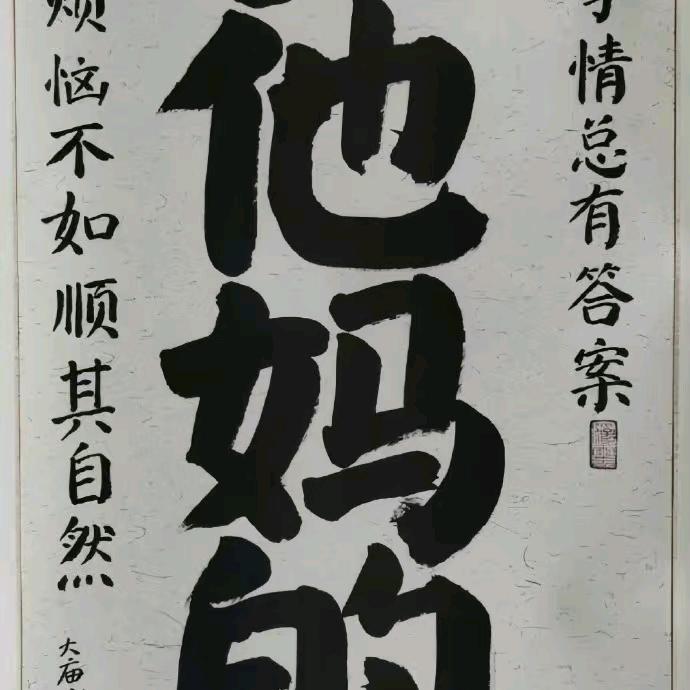 事情总有答案
他妈的
烦恼不如顺其自然
大庙